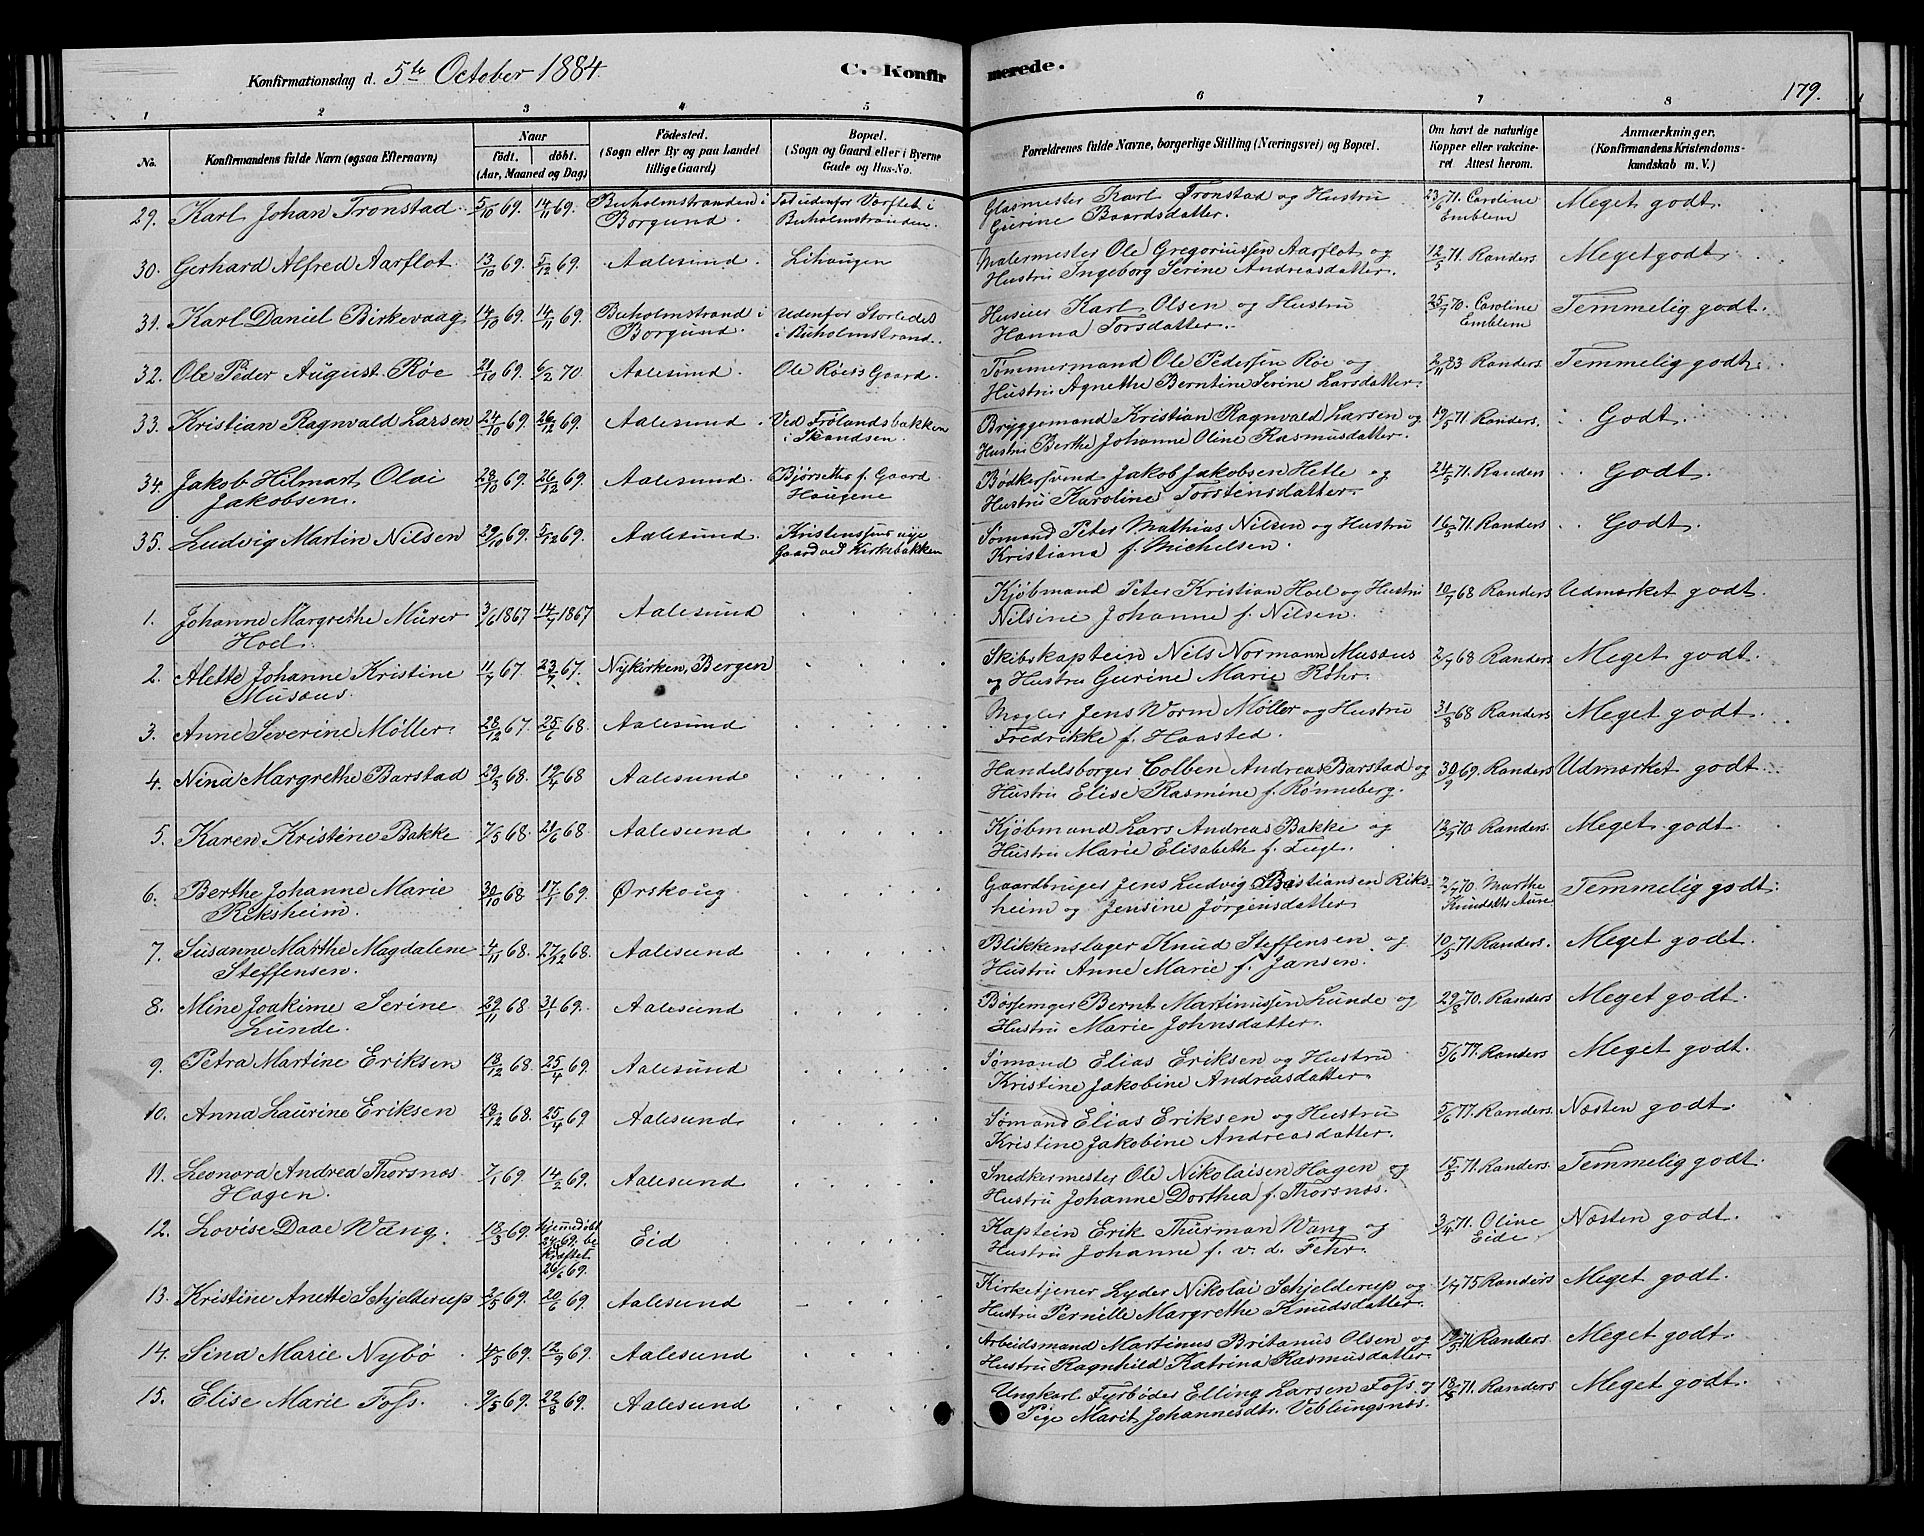 Konfirmationsdag d. 5te October 1884.
C. Konfirmerede.
179.
1 2 3 4 5 6 7 8
No.
Konfirmandens fulde Navn (ogsaa Efternavn)
Naar
födt. döbt.
(Aar, Maaned og Dag)
Födested.
(Sogn eller By og paa Landet
tillige Gaard)
Bopæl.
(Sogn og Gaard eller i Byerne
Gade og Hus-No.
Forældrenes fulde Navne, borgerlige Stilling (Næringsvei) og Bopæl.
Om havt de naturlige
Kopper eller vakcine-
ret Attest herom.
Anmærkninger.
(Konfirmandens Kristendoms-
kundskab m. V.)
29. Karl Johan Tronstad. 5/10 69. 14/11 69. Buholmstranden i Borgund. udenfor Værftet i Buholmstranden. Glasmester Karl Tronstad og Hustru
Gurine Baardsdatter. 23/6 71. Caroline Emblem Meget godt.
30. Gerhard Alfred Aarflot. 13/10 69. 5/12 69. Aalesund. Lihaugen Malermester Ole Gregoriussen Aarflot og
Hustru Ingeborg Serine Andreasdatter. 12/5 71. Randers Meget godt.
31. Karl Daniel Birkevaag 14/10 69. 14/11 69. Buholmstrand i Borgund. Udenfor Storledet i Buholmstrand. Huseier Karl Olsen og Hustru
Hanna Torsdatter. 25/7 70. Caroline Emblem Temmelig godt.
32. Ole Peder August Røe 21/10 69. 6/2 70. Aalesund. Ole Røes Gaard. Tømmermand Ole Pedersen Røe og
Hustru Agnethe Berntine Serine Larsdatter. 2/11 83 Randers. Temmelig godt.
33. Kristian Ragnvald Larsen 24/10 69. 26/12 69. Aalesund. Ved Frølandsbakken i Skandsen. Bryggemand Kristian Ragnvald Larsen og
Hustru Berthe Johanne Oline Rasmusdatter. 19/5 71. Randers. Godt.
34. Jakob Hilmart Olai
Jakobsen. 28/10 69. 26/12 69. Aalesund. Bjørseths f. Gaard Haugene Bødkersvend Jakob Jakobsen Hetle og
Hustru Karoline Torstensdatter. 24/5 71. Randers Godt.
35. Ludvig Martin Nilsen 29/10 69. 5/12 69. Aalesund. Kristensens nye Gaard ved Kirkebakken Sømand Peter Mathias Nilsen og Hustru
Kristiana f. Michelsen. 16/5 71. Randers Godt.
1. Johanne Margrethe Mürer
Hoel. 3/6 1867 14/7 1867 Aalesund Kjøbmand Peter Kristian Hoel og Hustru
Nilsine Johanne f. Nilsen. 10/7 68 Randers Udmærket godt.
2. Alette Johanne Kristine
Musæus. 11/7 67. 23/7 67. Nykirken, Bergen Skibskaptein Nils Normann Musæus
og Hustru Gurine Marie Røhr. 2/7 68 Randers Meget godt.
3. Anne Severine Møller. 28/12 67. 25/6 68. Aalesund Mægler Jens Worm Møller og Hustru
Fredrikke f. Haasted. 31/8 68 Randers Meget godt.
4. Nina Margrethe Barstad 29/3 68. 19/4 68 Aalesund Handelsborger Colben Andreas Barstad og
Hustru Elise Rasmine f. Rønneberg. 30/9 69. Randers Udmærket godt.
5. Karen Kristine Bakke 7/5 68. 21/6 68. Aalesund Kjøbmand Lars Andreas Bakke og
Hustru Marie Elisabeth f. Fugl. 13/9 70 Randers. Meget godt.
6. Berthe Johanne Marie
Riksheim. 30/10 68 17/1 69. Ørskoug Gaardbruger Jens Ludvig Bastiansen Riks-
heim og Jensine Jørgensdatter. 2/7 70. Marthe Knudsdtr. Aure Temmelig godt.
7. Susanne Marthe Magdalene
Steffensen. 4/11 68. 27/12 68. Aalesund Blikkenslager Knud Steffensen og
Hustru Anne Marie f. Jansen. 10/5 71 Randers. Meget godt.
8. Mine Joakime Serine
Lunde. 29/11 68 31/1 69. Aalesund Bøssemger Bernt Martinussen Lunde og
Hustru Marie Johnsdatter. 29/8 70. Randers Meget godt.
9. Petra Martine Eriksen 18/12 68. 25/4 69. Aalesund Sømand Elias Eriksen og Hustru
Kristine Jakobine Andreasdatter. 5/6 77. Randers Meget godt.
10. Anna Laurine Eriksen 18/12 68. 25/4 69 Aalesund. Sømand Elias Eriksen og Hustru
Kristine Jakobine Andreasdatter. 5/6 77. Randers. Næsten godt.
11. Leonora Andrea Thorsnæs
Hagen. 7/1 69. 14/2 69. Aalesund Snedkermester Ole Nikolaisen Hagen og
Hustru Johanne Dorthea f. Thorsnæs. 15/5 71. Randers. Temmelig godt.
12. Lovise Daae Wang. 18/3 69. hjemmedøbt 24/3 69. be kræftet 26/6 69. Eid Kaptein Erik Thurman Wang og
Hustru Johanne f. v. d. Fehr. 3/4 71. Oline Eide Næsten godt.
13. Kristine Anette Schjelderup 2/5 69. 20/6 69. Aalesund Kirketjener Lyder Nikolai Schjelderup og
Hustru Pernille Margrethe Knudsdatter. 14/7 75 Randers Meget godt.
14. Sina Marie Nybø 4/5 69. 12/9 69. Aalesund Arbeidsmand Martinus Britanus Olsen og
Hustru Ragnhild Katrina Rasmusdatter. 19/5 71 Randers. Meget godt.
15. Elise Marie Foss. 9/5 69. 22/8 69. Aalesund Ungkarl Fyrbøder Elling Larsen Foss og
Pige Marit Johannesdtr. Veblungsnæs. 18/5 71. Randers Meget godt.